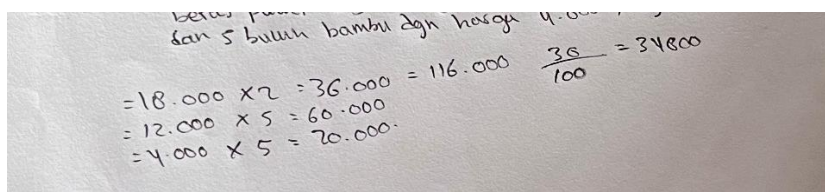 dan 5 buluh bambu dgn harga
=18.000 x2 =36.000 = 116.000 30/100 = 34800
= 12.000 x 5 = 60.000
=4.000 x 5 = 20.000.